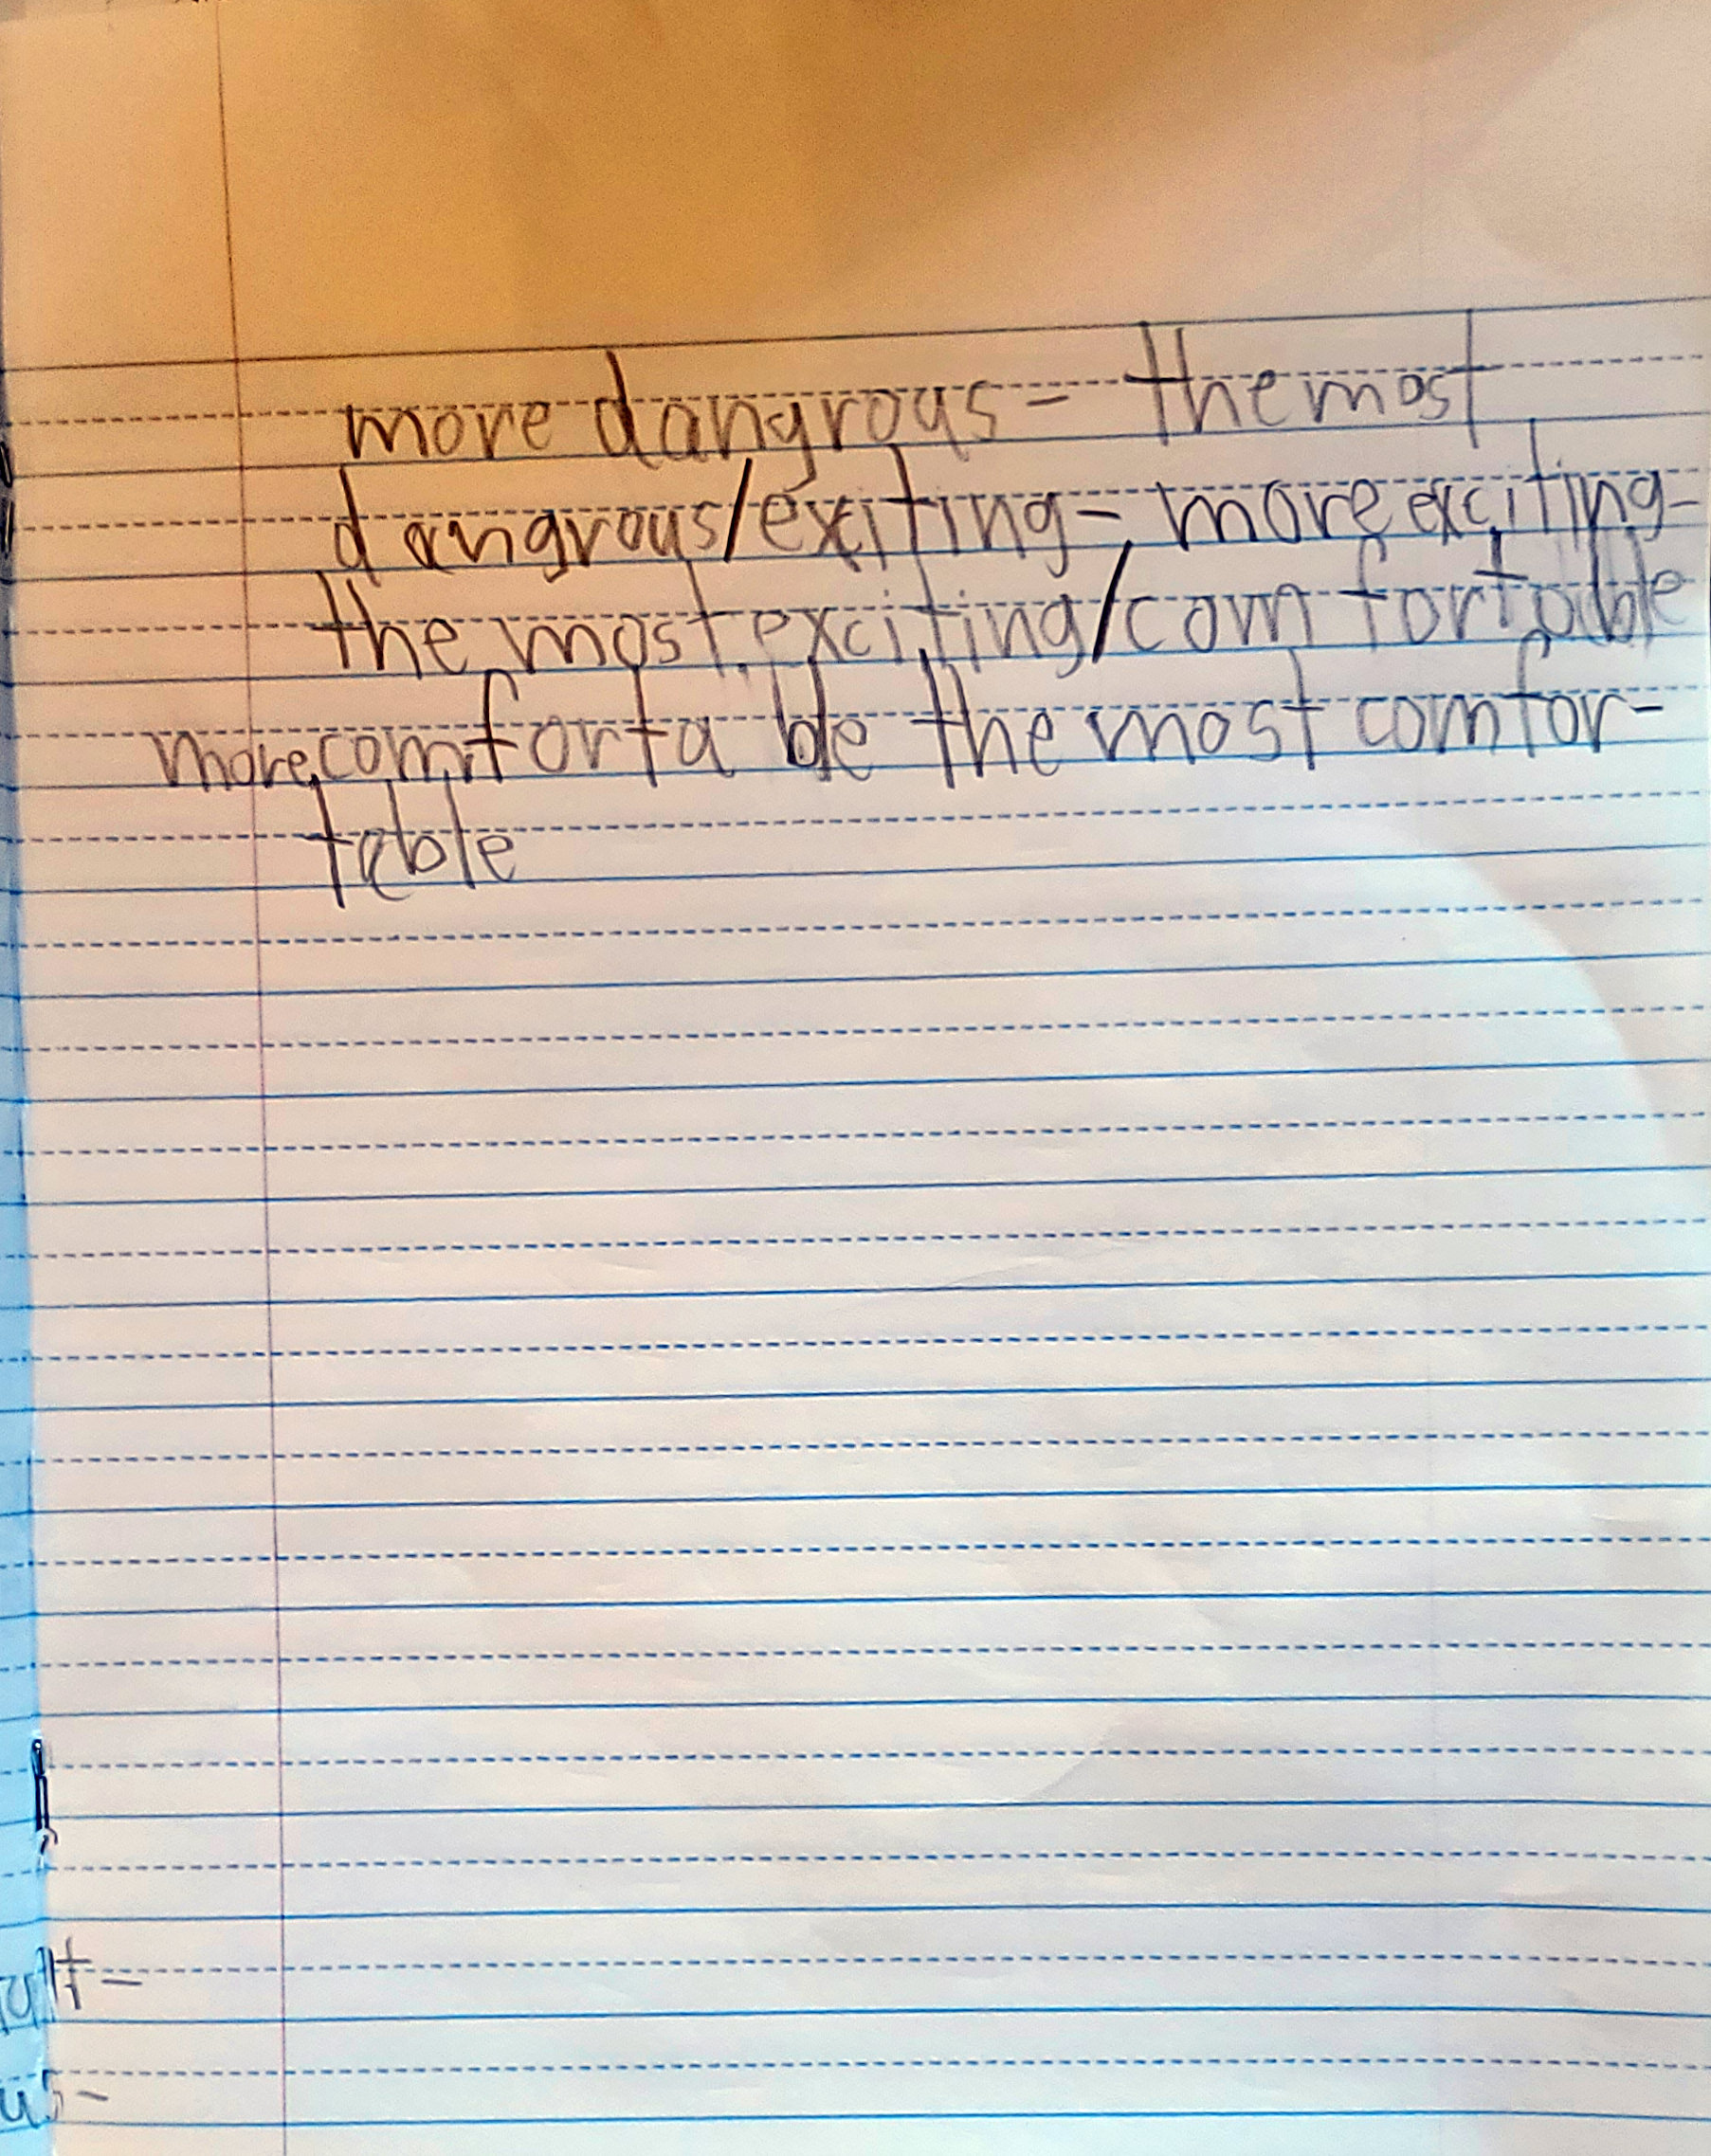 more dangrous - the most
dangrous/exiting - more exciting -
the most exciting/comfortable
more comfortable the most comfor-
table